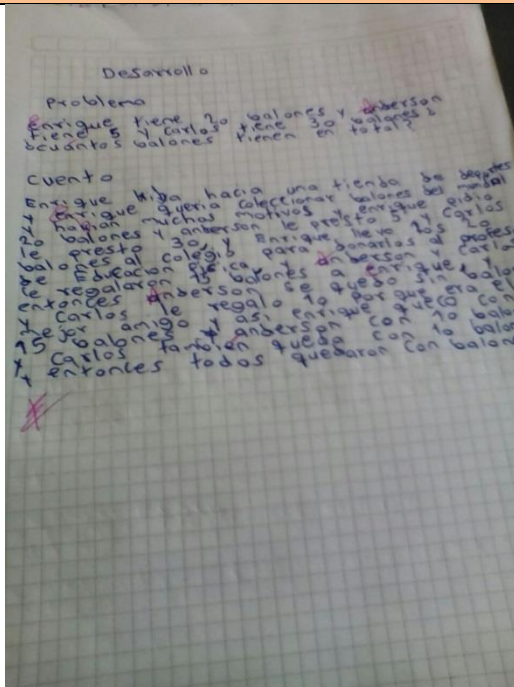 Desarrollo
Problema
Enrique tiene 20 balones y anberson
tiene 5 y Carlos tiene 30 balones
¿cuantos balones tienen en total?
cuento
Enrique hiba hacia una tienda de deportes
y enrique queria coleccionar balones del mundial
habian muchos motivos enrique pidio
20 balones y anberson le presto 5 y Carlos
le presto 30 y Enrique llevo los 20
balones al colegio para donarlos al profesor
de Educacion fisica anberson y Carlos
le regalaron 15 balones a enrique y
entonces anberson se quedo sin balones
y Carlos le regalo 10 porque era el
mejor amigo y asi enrique quedo con
15 balones y anberson con 10 balones
y Carlos tanbien quedo con 10 balones
y entonces todos quedaron con balones